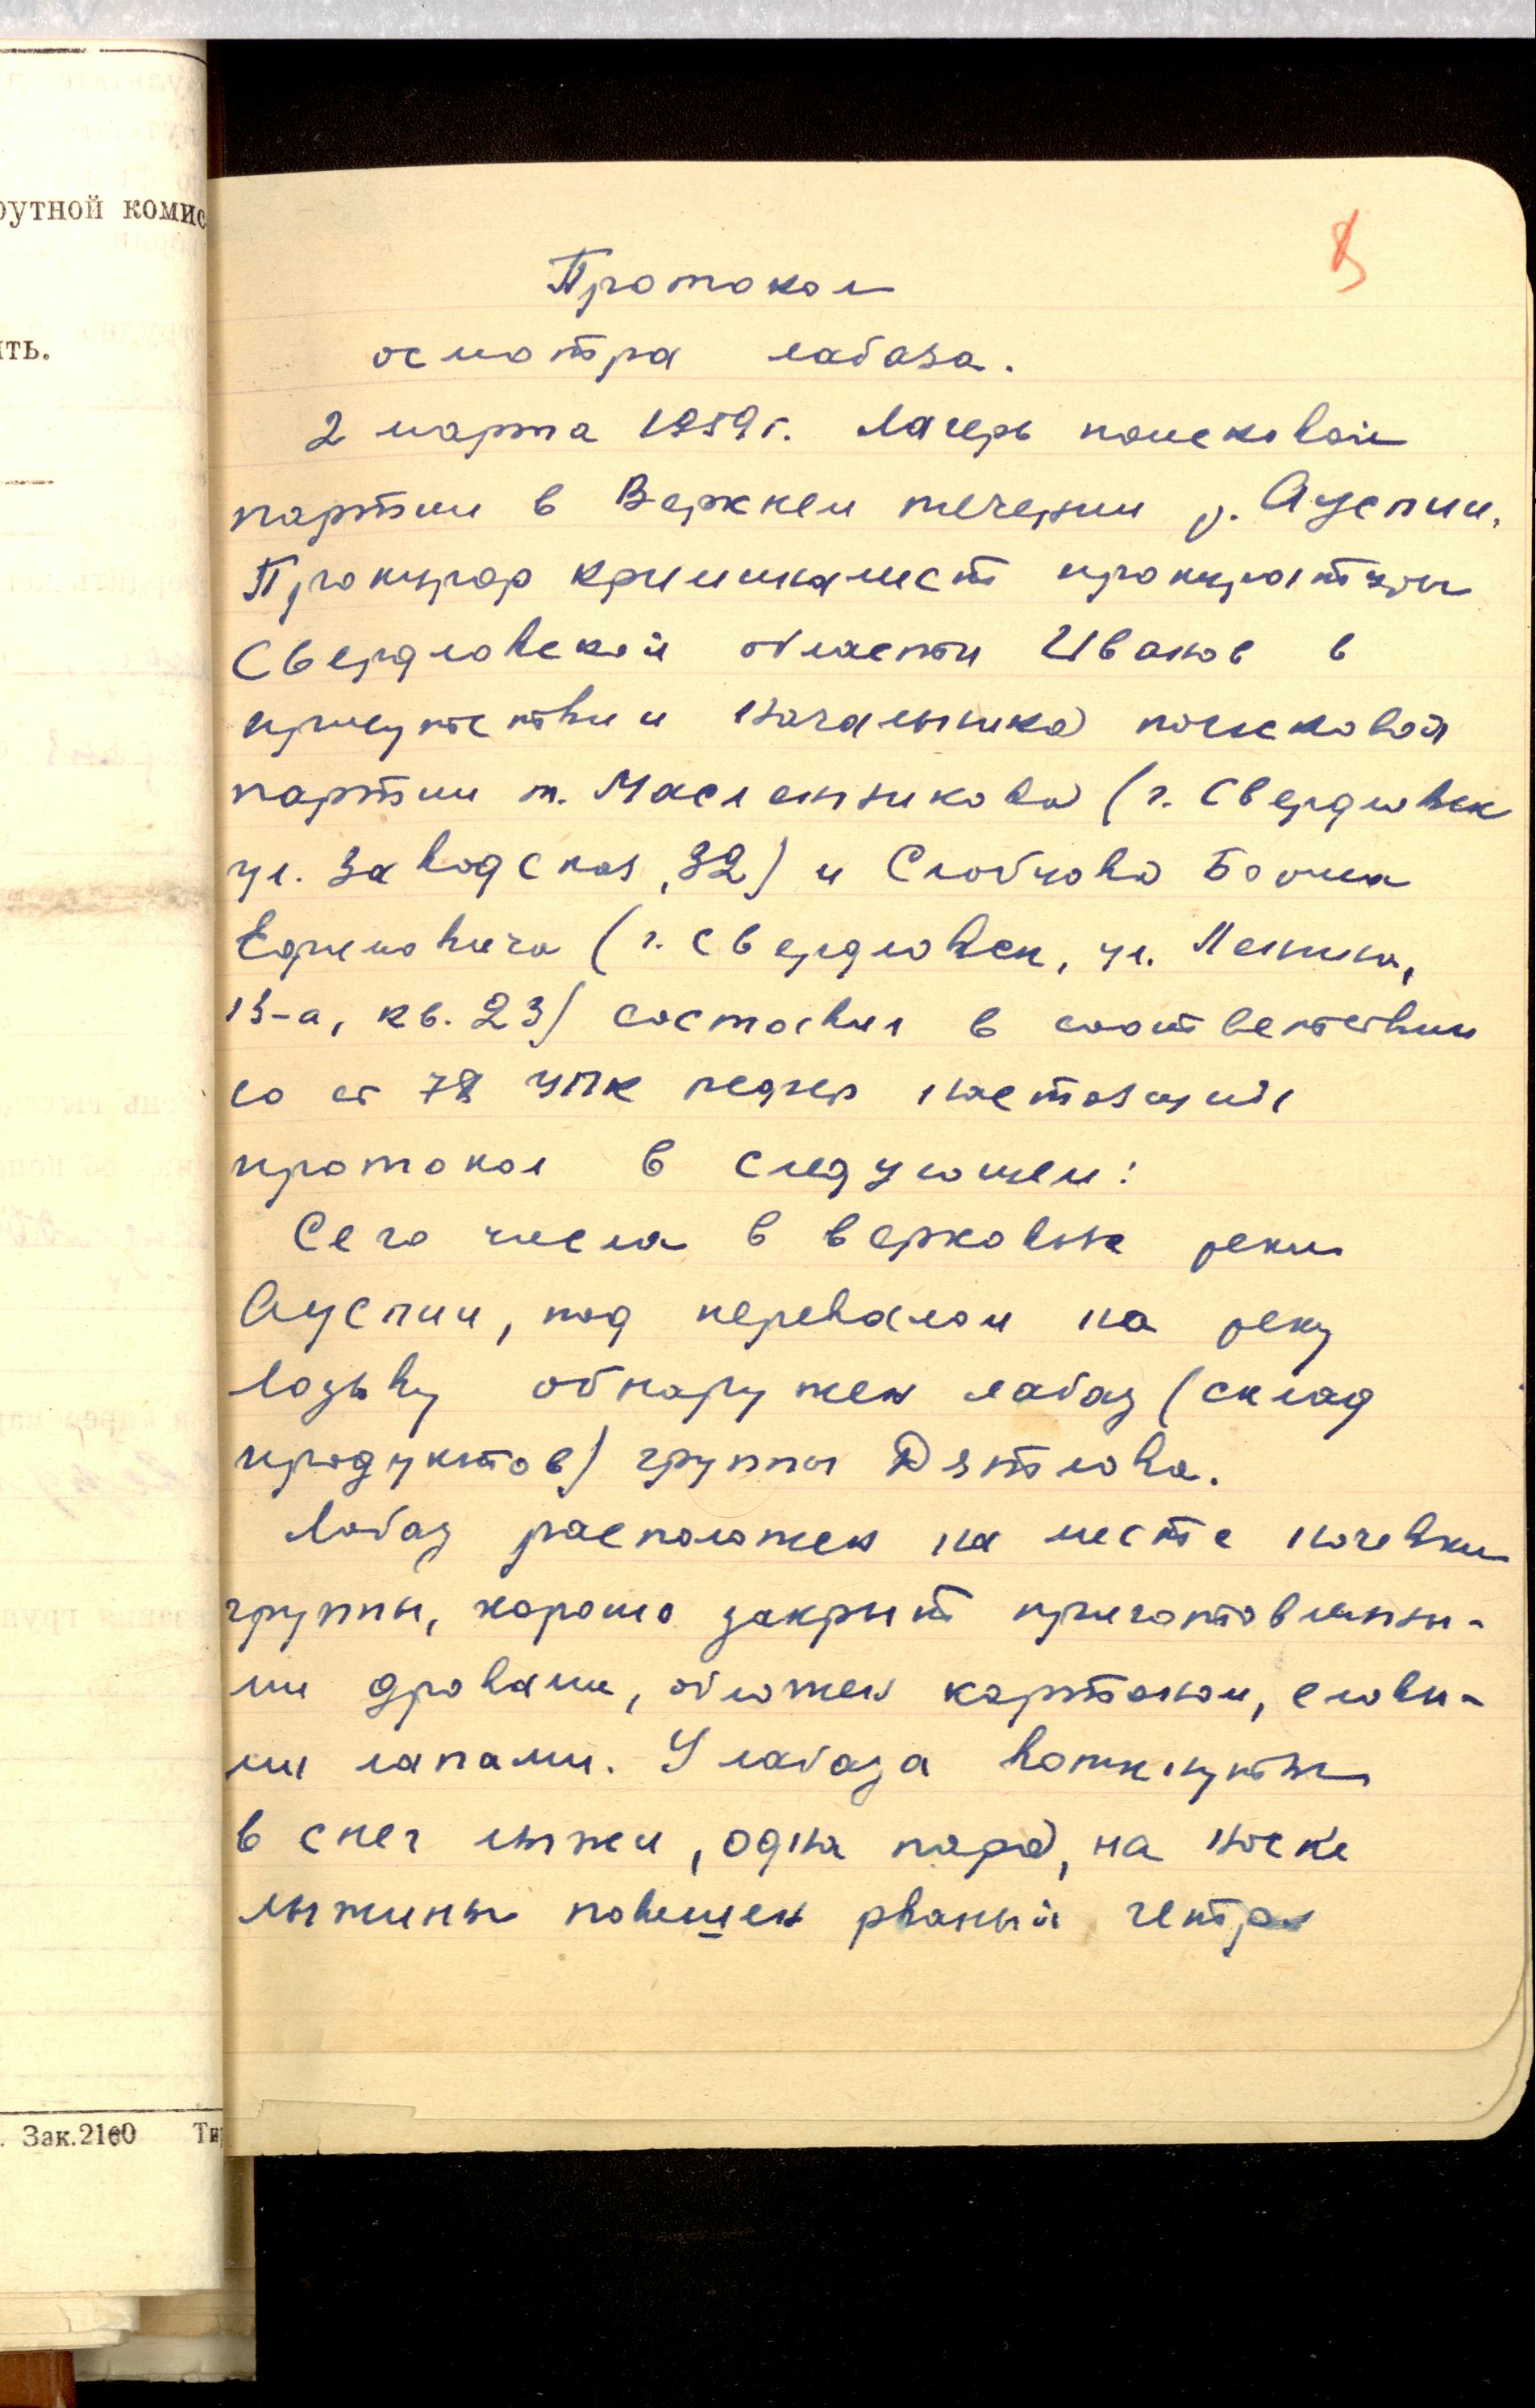 рутной комис
ить.
. Зак.2160 Ти
8
Протокол
осмотра лабаза.
2 марта 1959г. Лагерь поисковой
партии в Верхнем течении р. Ауспии.
Прокурор криминалист прокуратуры
Свердловской области Иванов в
присутствии начальника поисковой
партии т. Масленникова (г. Свердловск
ул. Заводская, 32) и Слобцова Бориса
Ефимовича (г. Свердловск, ул. Ленина,
13-а, кв. 23) составил в соответствии
со ст 78 УПК РСФСР настоящий
протокол в следующем:
Сего числа в верховье реки
Ауспии, под перевалом на реку
Лозьву обнаружен лабаз (склад
продуктов) группы Дятлова.
Лабаз расположен на месте ночевки
группы, хорошо закрыт приготовленны-
ми дровами, обложен картоном, еловы-
ми лапами. У лабаза воткнуты
в снег лыжи, одна пара, на носке
лыжины повешен рваный гетр